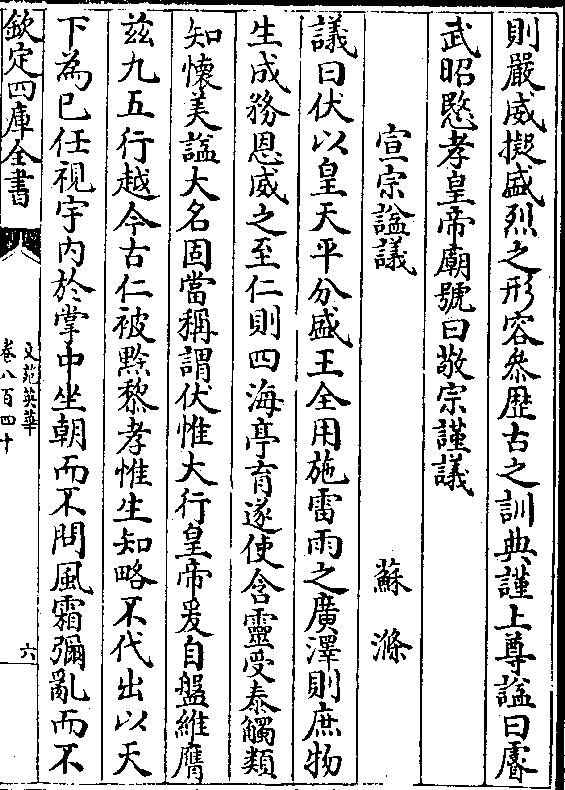 則嚴威擬盛烈之形容叅歴古之訓典謹上尊諡曰睿
武昭愍孝皇帝廟號曰敬宗謹議
宣宗諡議 蘇滌
議曰伏以皇天平分盛王全用施雷雨之廣澤則庶物
生成務恩威之至仁則四海亭育遂使含靈受泰觸類
知懷美諡大名固當稱謂伏惟大行皇帝爰自盤維膺
兹九五行越今古仁被黔黎孝惟生知略不代出以天
下為已任視宇内於掌中坐朝而不問風霜彌亂而不
欽定四庫全書
文苑英華
卷八百四十
六